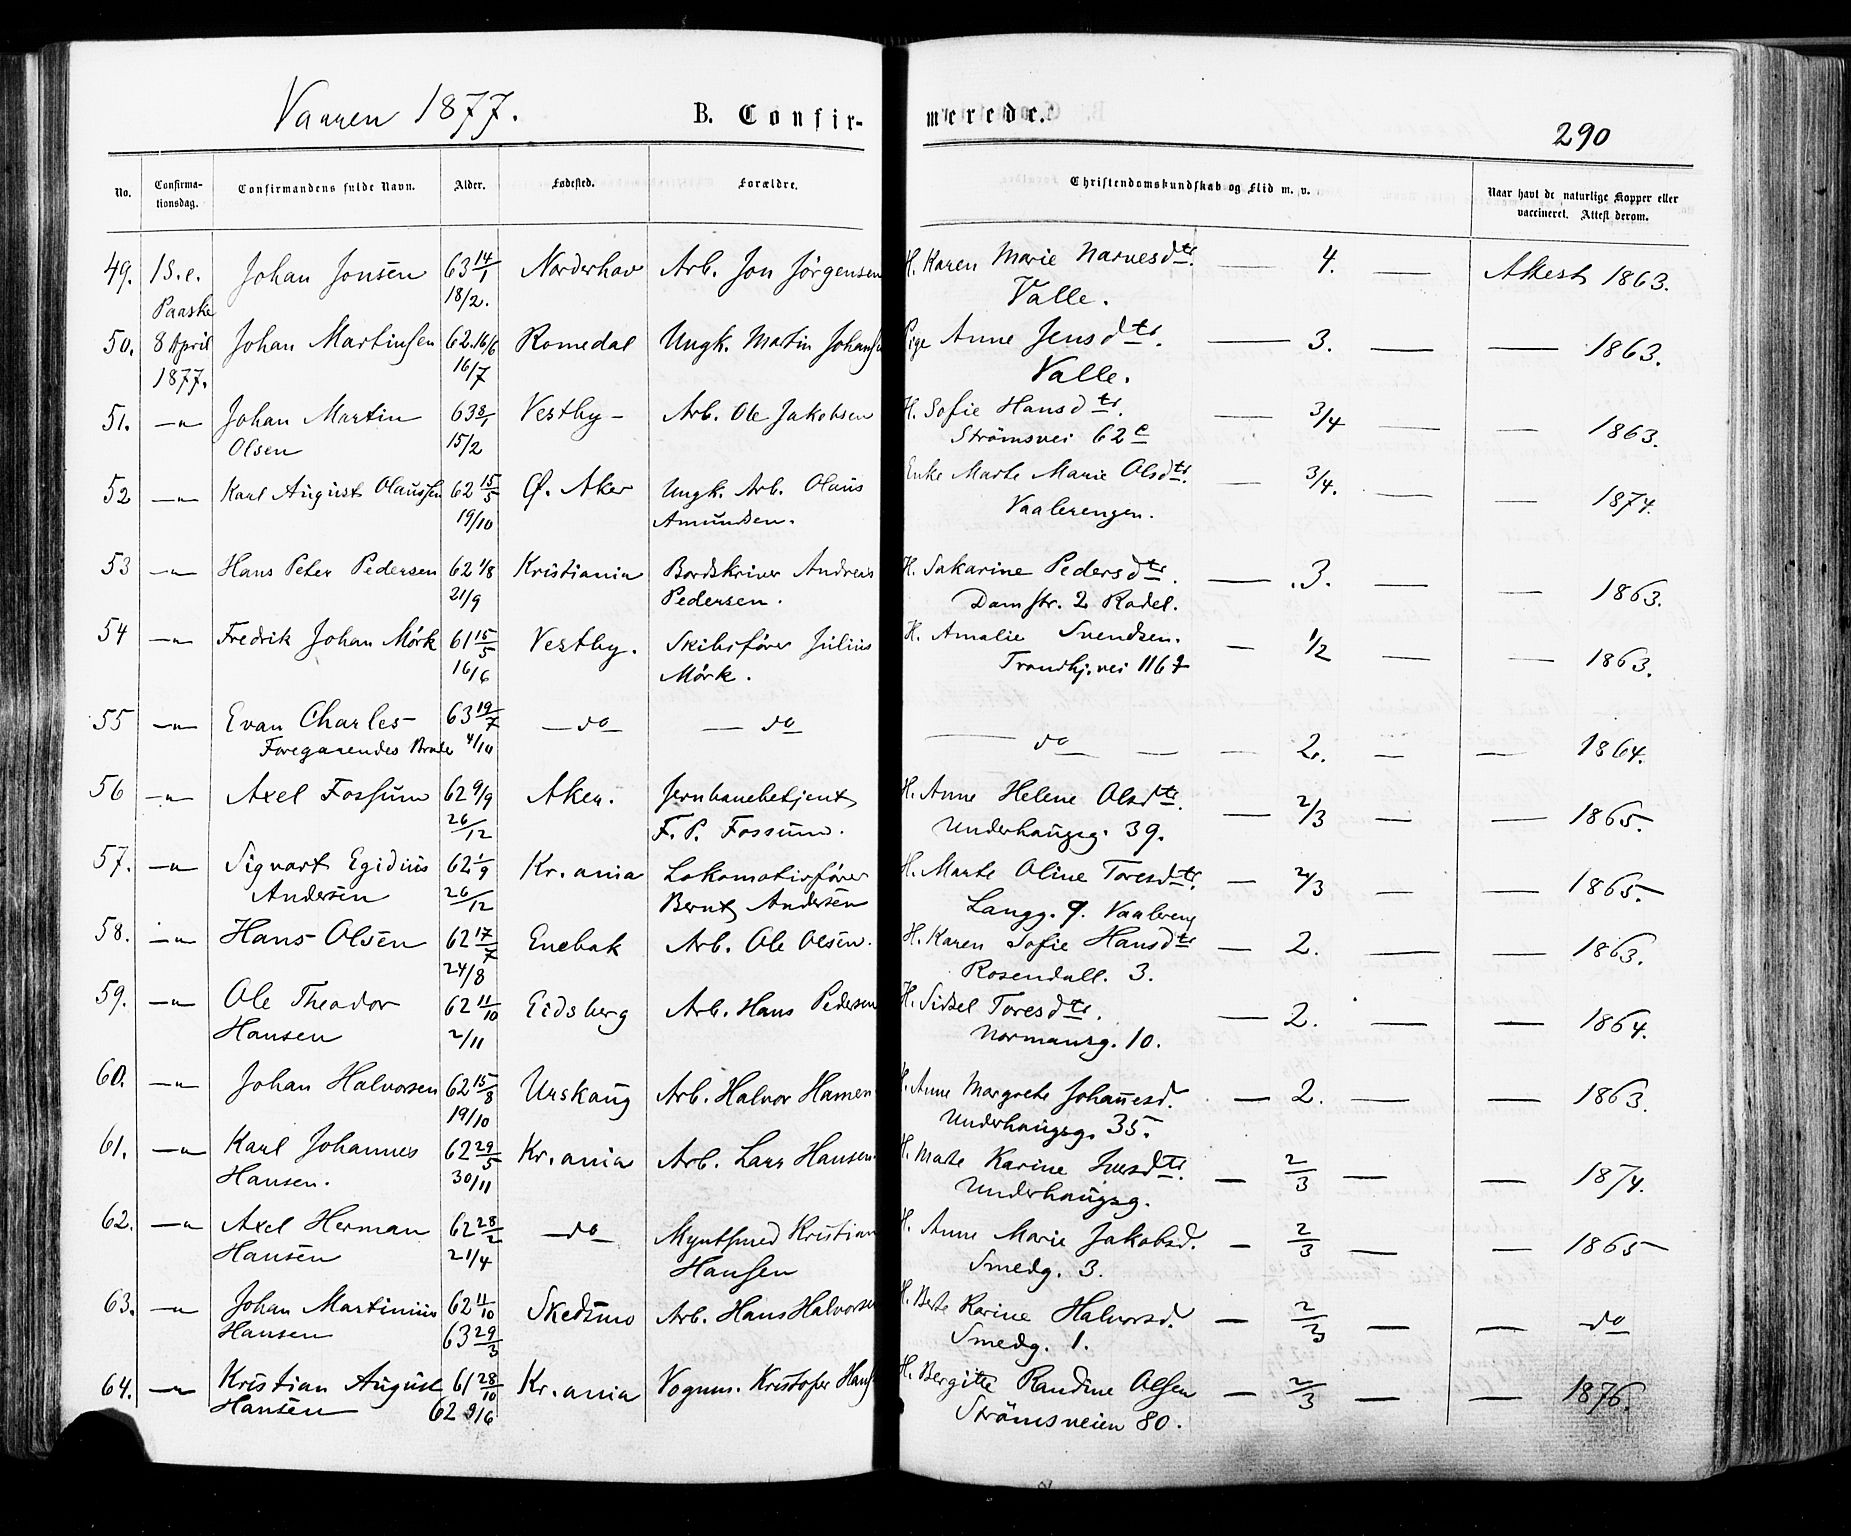 Vaaren 1877. B. Confir-merede. 290
No. Confirma-tionsdag. Confirmandens fulde Navn. Alder. Fødested. Forældre. Christendomskundskab og Flid m. v. Naar havt de naturlige Kopper eller vaccineret. Attest derom.
49. 1 S. e. Johan Jonsen 63 14/1 Norderhov Arb. Jon Jørgensen H. Karen Marie Narvesdtr. — 4. — Attest 1863.
Paaske 18/2. Valle.
50. 8 April Johan Martinsen 62. 16/6 Romedal Ungk. Martin Johans Pige Anne Jensdtr. — 3. — — 1863.
1877. 16/7 Valle.
51. —"— Johan Martin 63 8/1 Vestby — Arb. Ole Jakobsen H. Sofie Hansdtr. — 3/4 — — 1863.
Olsen 15/2 Strömsvei 62 c
52 —"— Karl August Olaussen 62 15/5 Ø. Aker Ungk. Arb. Olaus Enke Marte Marie Olsdtr. — 3/4. — — 1874.
19/10 Amundsen. Vaalerengen.
53 —"— Hans Peter Pedersen 62 1/8 Kristiania Bordskriver Andreas H. Sakarine Pedersdtr. — 3. — — 1863.
21/9 Pedersen. Damstr. 2 Rodel.
54 —"— Fredrik Johan Mörk 61 15/5 Vestby. Skibsfører Julius H. Amalie Svendsen. — 1/2 — — 1863.
16/6 Mörk. Trondhj. vei 116
55 —"— Evan Charles — 63 19/7 — do — do — do — — — 2. — — 1864.
Foregaaendes Broder 4/10
56 —"— Axel Fossum 62 9/9 Aker. Jernbanebetjent H. Anne Helene Olsdtr. — 2/3 — — 1865.
26/12 F. P. Fossum. Underhaugsg. 39.
57. —"— Sigvart Egidius 62 1/9 Kr. ania Lokomotivfører H. Marte Oline Toresdtr. — 2/3 — — 1865.
Andersen 26/12 Bernt Andersen Langg. 9. Vaalereng
58. —"— Hans Olsen 62 17/7 Enebak Arb. Ole Olsen. H. Karen Sofie Hansdtr — 2. — — 1863.
24/8 Rosendall. 3.
59. —"— Ole Theodor 62 11/10 Eidsberg Arb. Hans Pedersen H. Sidsel Toresdtr. — 2. — — 1864.
Hansen 2/11 Normansg. 10.
60. —"— Johan Halvorsen 62 15/8 Urskaug Arb. Halvor Hansen H. Anne Margrete Johannesd. — 2. — — 1863.
19/10 Underhaugsg. 35.
61. —"— Karl Johannes 62 29/5 Kr. ania Arb. Lars Hansen. H. Mate Karine Iversdtr. — 2/3 — — 1874.
Hansen. 30/11 Underhaugsg.
62. —"— Axel Herman 62 28/2 — do Myntsmed Kristian H. Anne Marie Jakobsd. — 2/3 — — 1865
Hansen 21/4 Hansen Smedg. 3.
63. —"— Johan Martinius 62 11/10 Skedsmo Arb. Hans Halvorsen H. Berte Karine Halvorsd. — 2/3 — — do
Hansen 63 29/3 Smedg. 1.
64. —"— Kristian August 61 28/10 Kr. ania Vognm. Kristofer Hans H. Bergitte Randine Olsen — 2/3 — — 1876.
Hansen 62 9/6 Strömsveien 80.